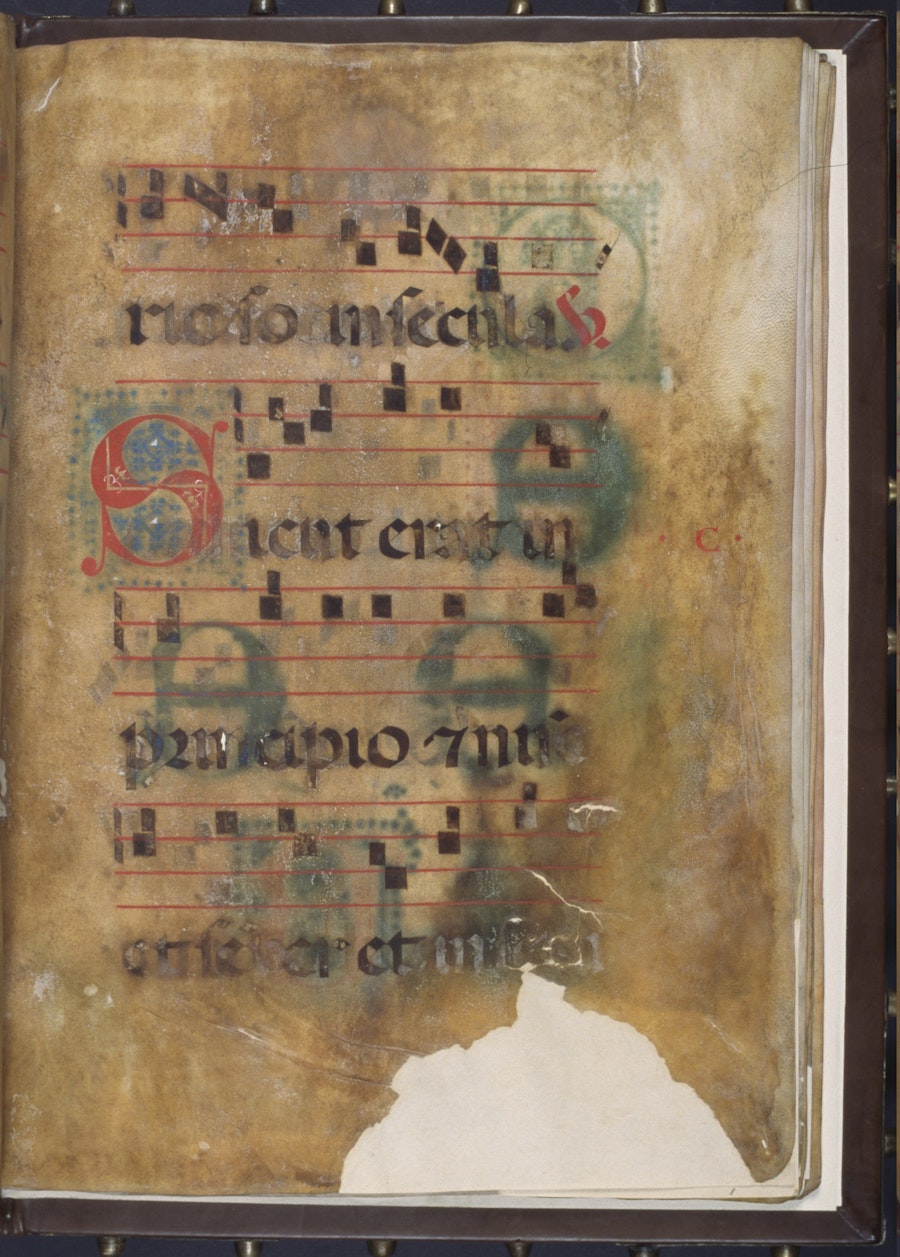 rioso in secula. V.
Sicut erat in
· C ·
principio ⁊ nunc
et semper et in secul